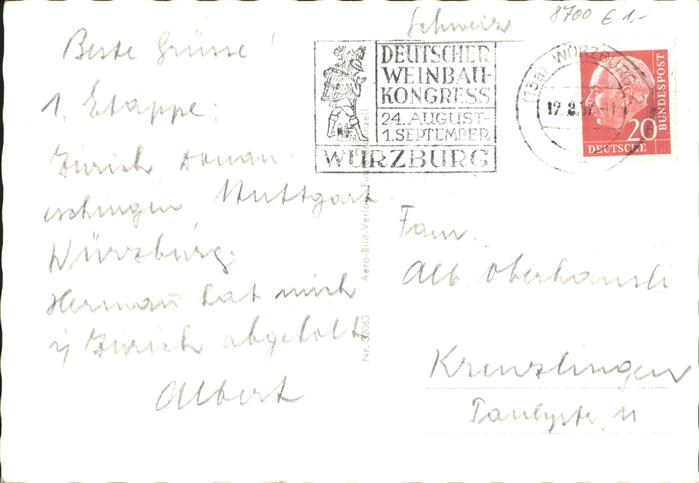 Schweiz
8700 € 1,-
Beste Grüsse!
1. Etappe:
Zürich Donau
eschingen Stuttgart
Würzburg.
Herman hat mich
in Zürich abgeholt
Albert
DEUTSCHER
WEINBAU-
KONGRESS
24. AUGUST-
1. SEPTEMBER
WÜRZBURG
(13a) WÜRZBURG
20
DEUTSCHE
BUNDESPOST
Nr. 32063 Aero-Bild-Verlag
Fam.
Alb. Oberhänsli
Kreuzlingen